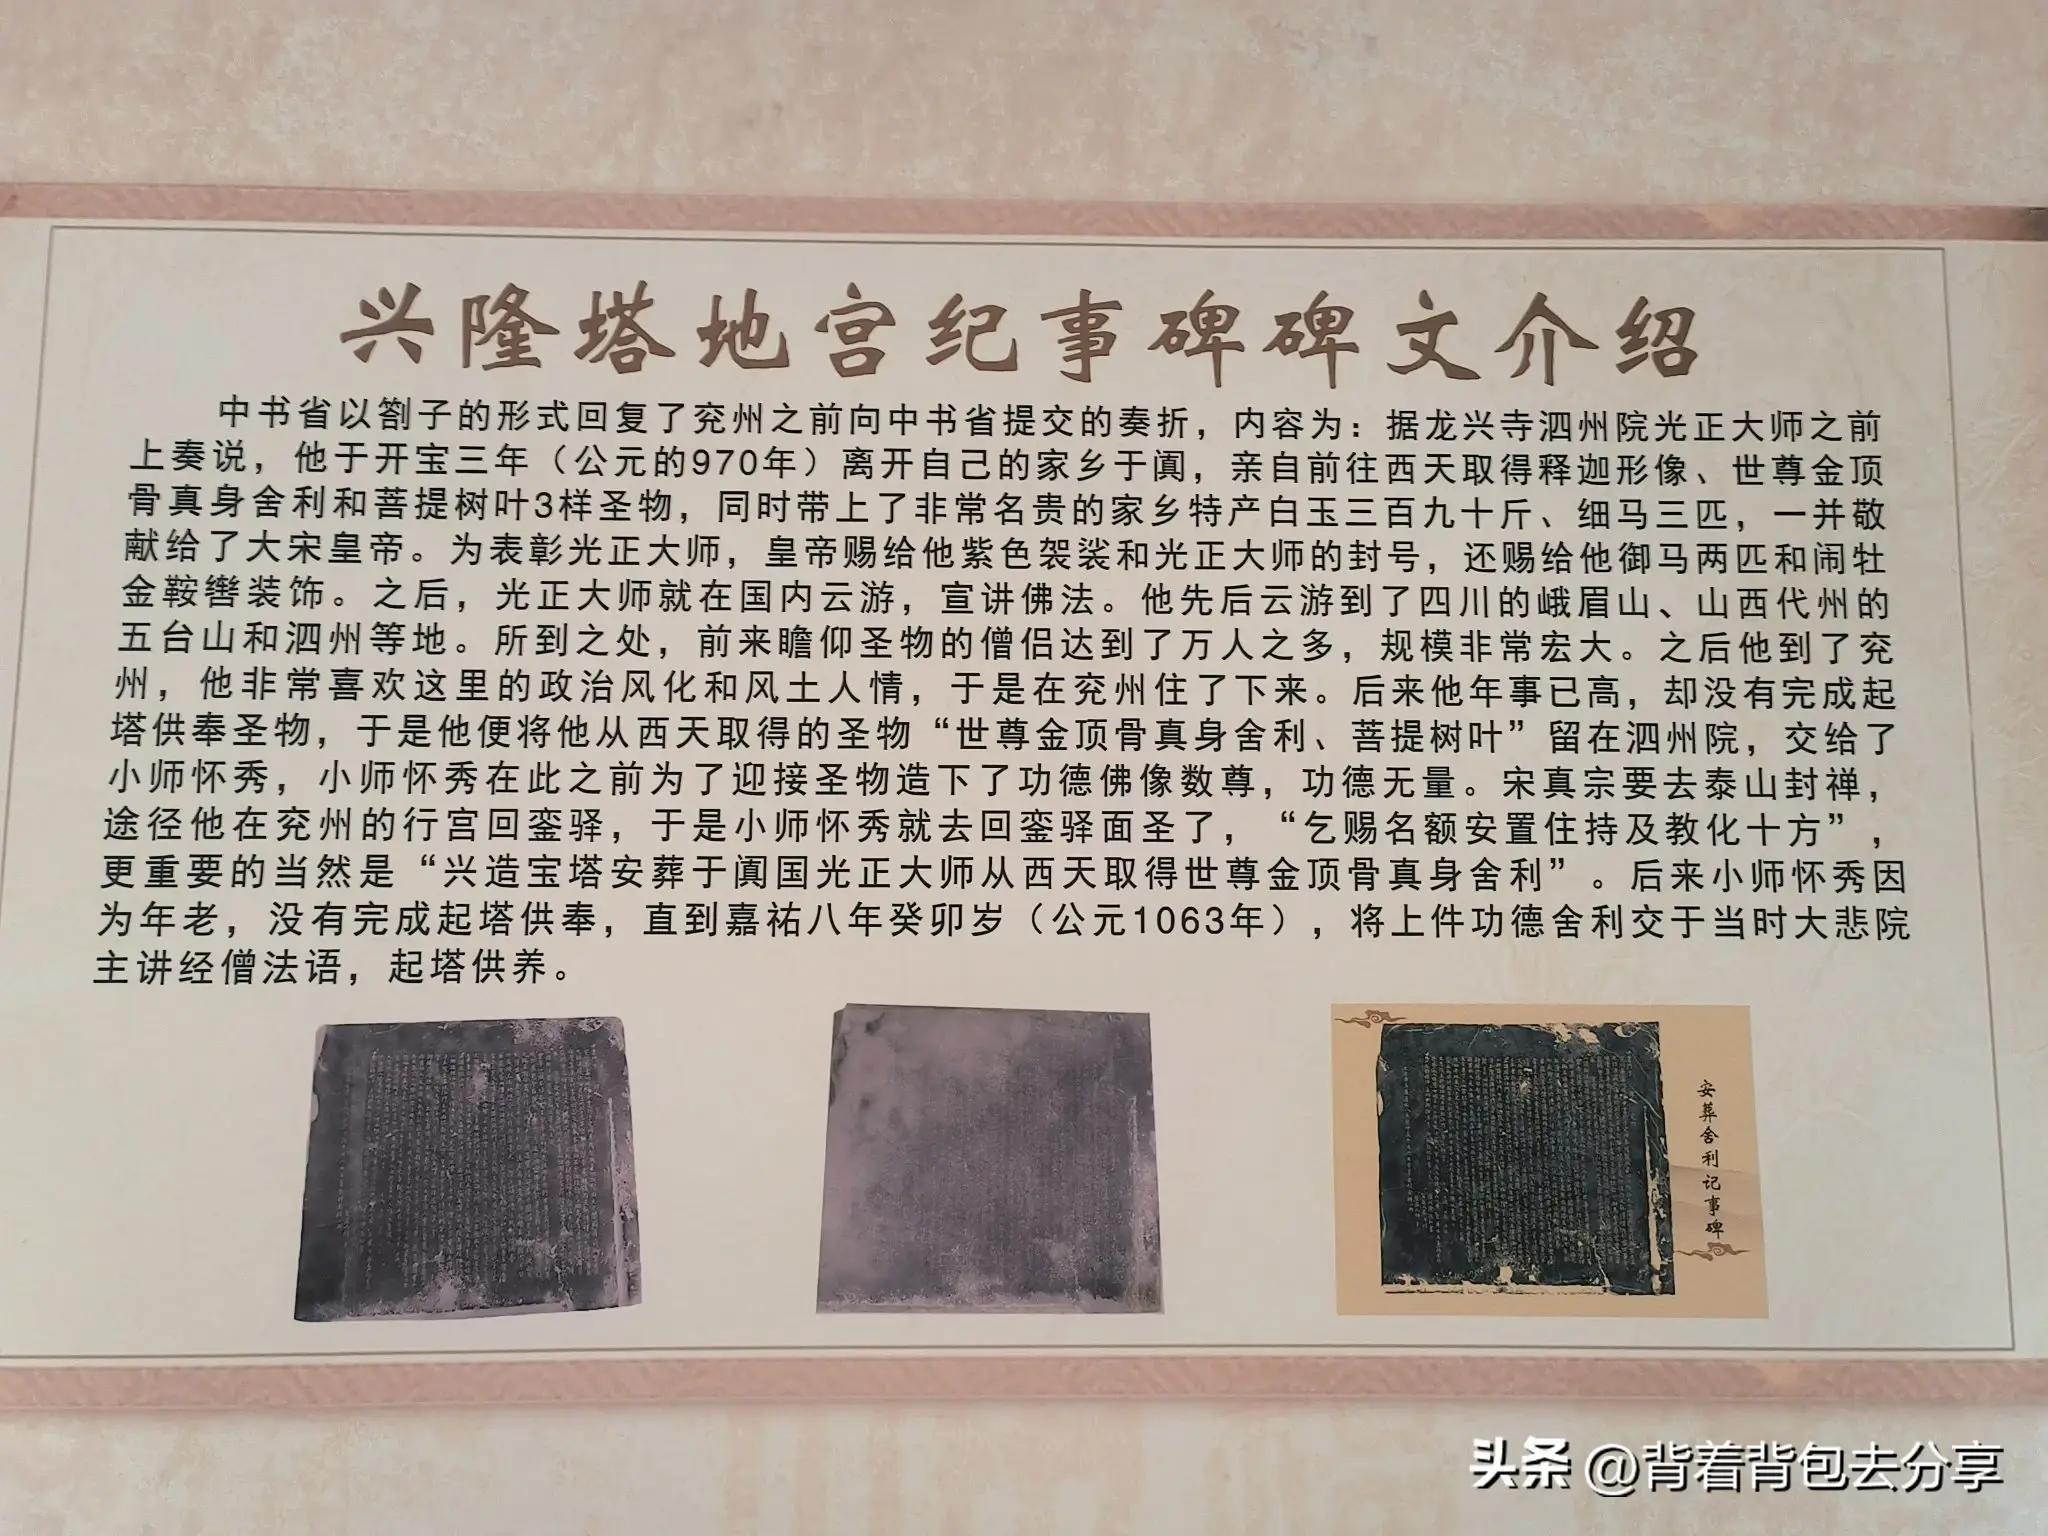 兴隆塔地宫纪事碑碑文介绍
中书省以劄子的形式回复了兖州之前向中书省提交的奏折，内容为：据龙兴寺泗州院光正大师之前
上奏说，他于开宝三年（公元的970年）离开自己的家乡于阗，亲自前往西天取得释迦形像、世尊金顶
骨真身舍利和菩提树叶3样圣物，同时带上了非常名贵的家乡特产白玉三百九十斤、细马三匹，一并敬
献给了大宋皇帝。为表彰光正大师，皇帝赐给他紫色袈裟和光正大师的封号，还赐给他御马两匹和闹牡
金鞍辔装饰。之后，光正大师就在国内云游，宣讲佛法。他先后云游到了四川的峨眉山、山西代州的
五台山和泗州等地。所到之处，前来瞻仰圣物的僧侣达到了万人之多，规模非常宏大。之后他到了兖
州，他非常喜欢这里的政治风化和风土人情，于是在兖州住了下来。后来他年事已高，却没有完成起
塔供奉圣物，于是他便将他从西天取得的圣物“世尊金顶骨真身舍利、菩提树叶”留在泗州院，交给了
小师怀秀，小师怀秀在此之前为了迎接圣物造下了功德佛像数尊，功德无量。宋真宗要去泰山封禅，
途径他在兖州的行宫回銮驿，于是小师怀秀就去回銮驿面圣了，“乞赐名额安置住持及教化十方”，
更重要的当然是“兴造宝塔安葬于阗国光正大师从西天取得世尊金顶骨真身舍利”。后来小师怀秀因
为年老，没有完成起塔供奉，直到嘉祐八年癸卯岁（公元1063年），将上件功德舍利交于当时大悲院
主讲经僧法语，起塔供养。
安葬舍利记事碑
头条 @背着背包去分享